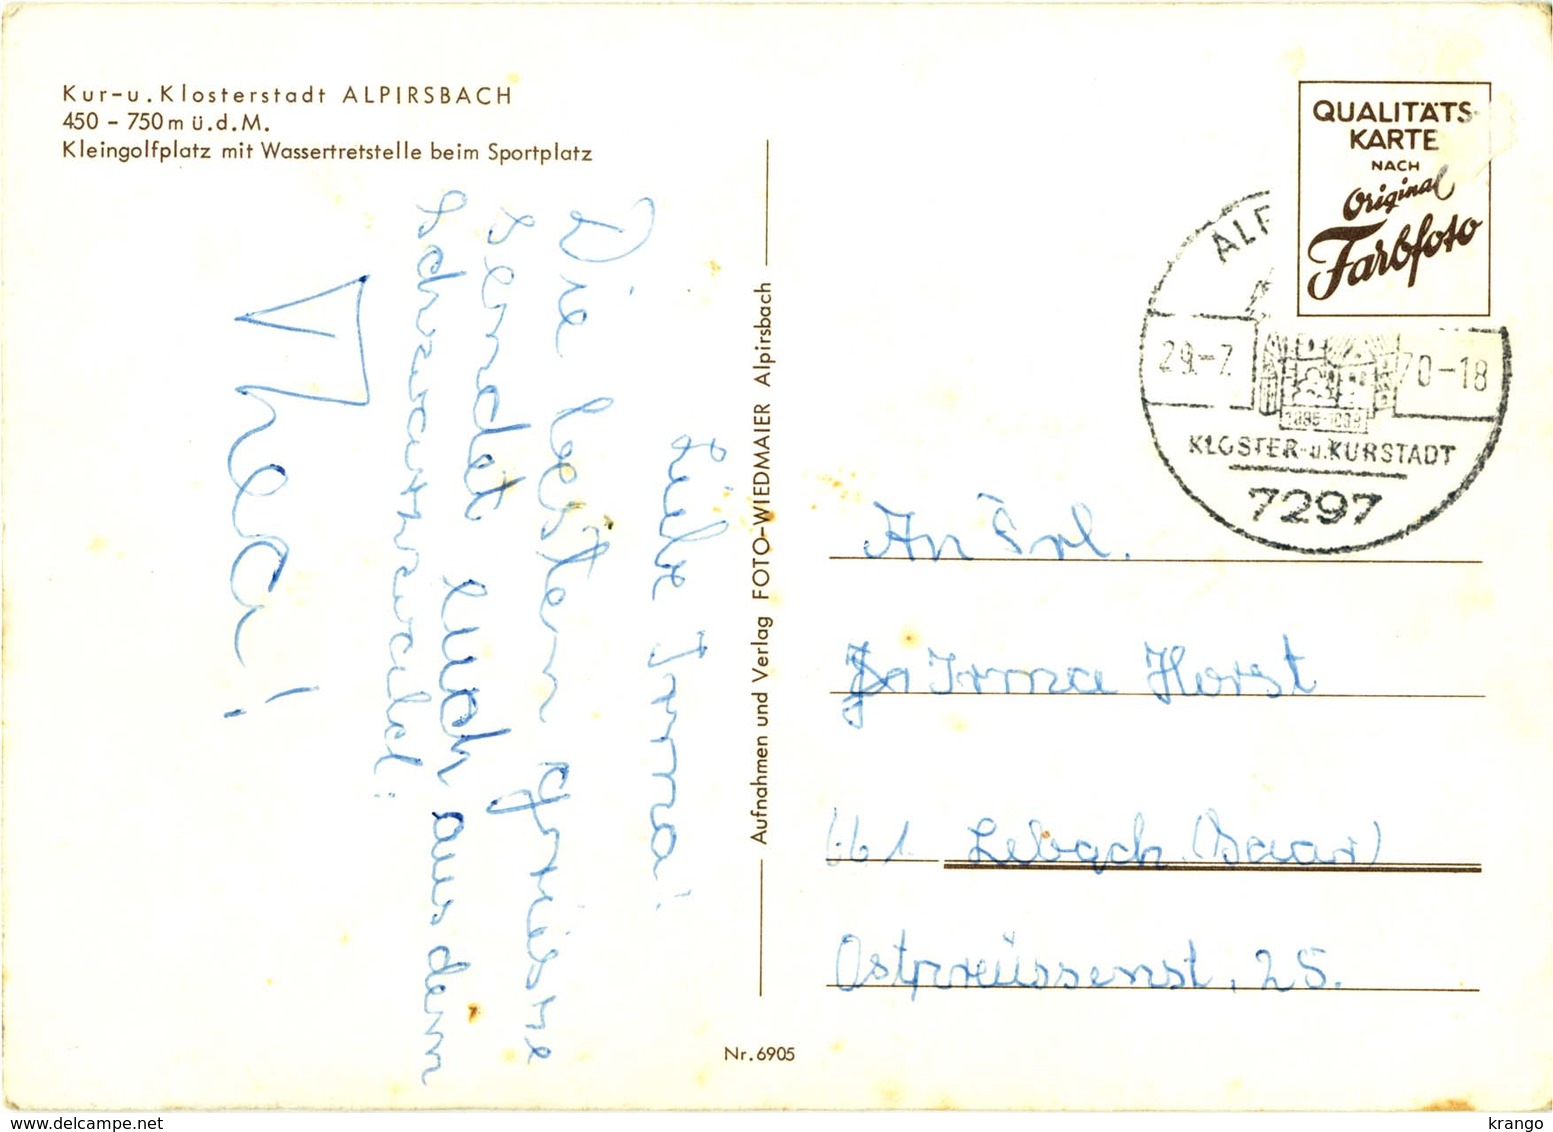 Kur-u. Klosterstadt ALPIRSBACH
450 - 750 m ü. d. M.
Kleingolfplatz mit Wassertretstelle beim Sportplatz
Liebe Irma!
Die besten Grüsse
sendet Euch aus dem
Schwarzwald:
Thea!
Aufnahmen und Verlag FOTO-WIEDMAIER Alpirsbach
Nr. 6905
QUALITÄTS-
KARTE
NACH
Original
Farbfoto
ALP
29.-7. 70-18
KLOSTER-u. KURSTADT
7297
An Frl.
Irma Horst
661 Lebach (Saar)
Ostpreüssenst. 25.
www.delcampe.net
krango